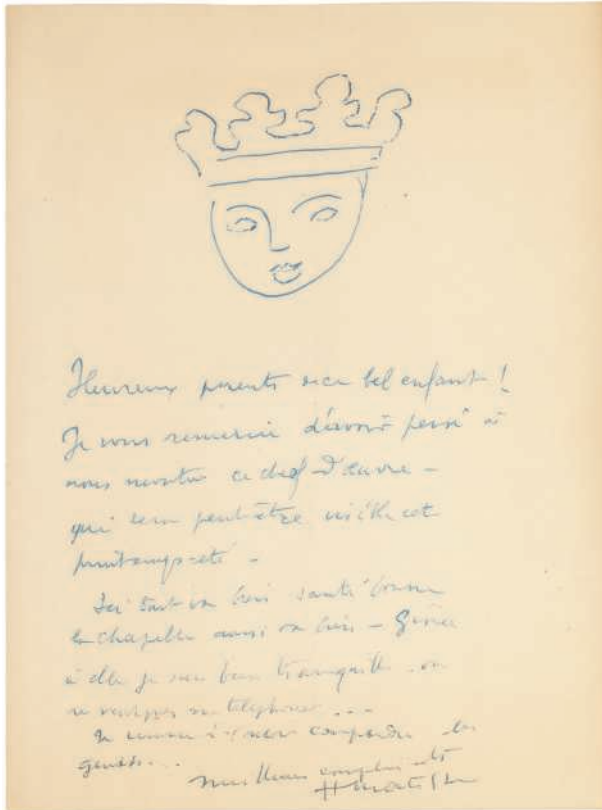 Heureux parents de ce bel enfant !
Je vous remercie d'avoir pensé à
nous montrer ce chef-d'œuvre –
qui sera peut-être visible cet
printemps-été –
Ici tout va bien santé bonne
la chapelle aussi va bien – Grâce
à elle je suis bien tranquille – on
ne téléphoner ...
Je commence à comprendre les
meilleurs compliments
HMatisse